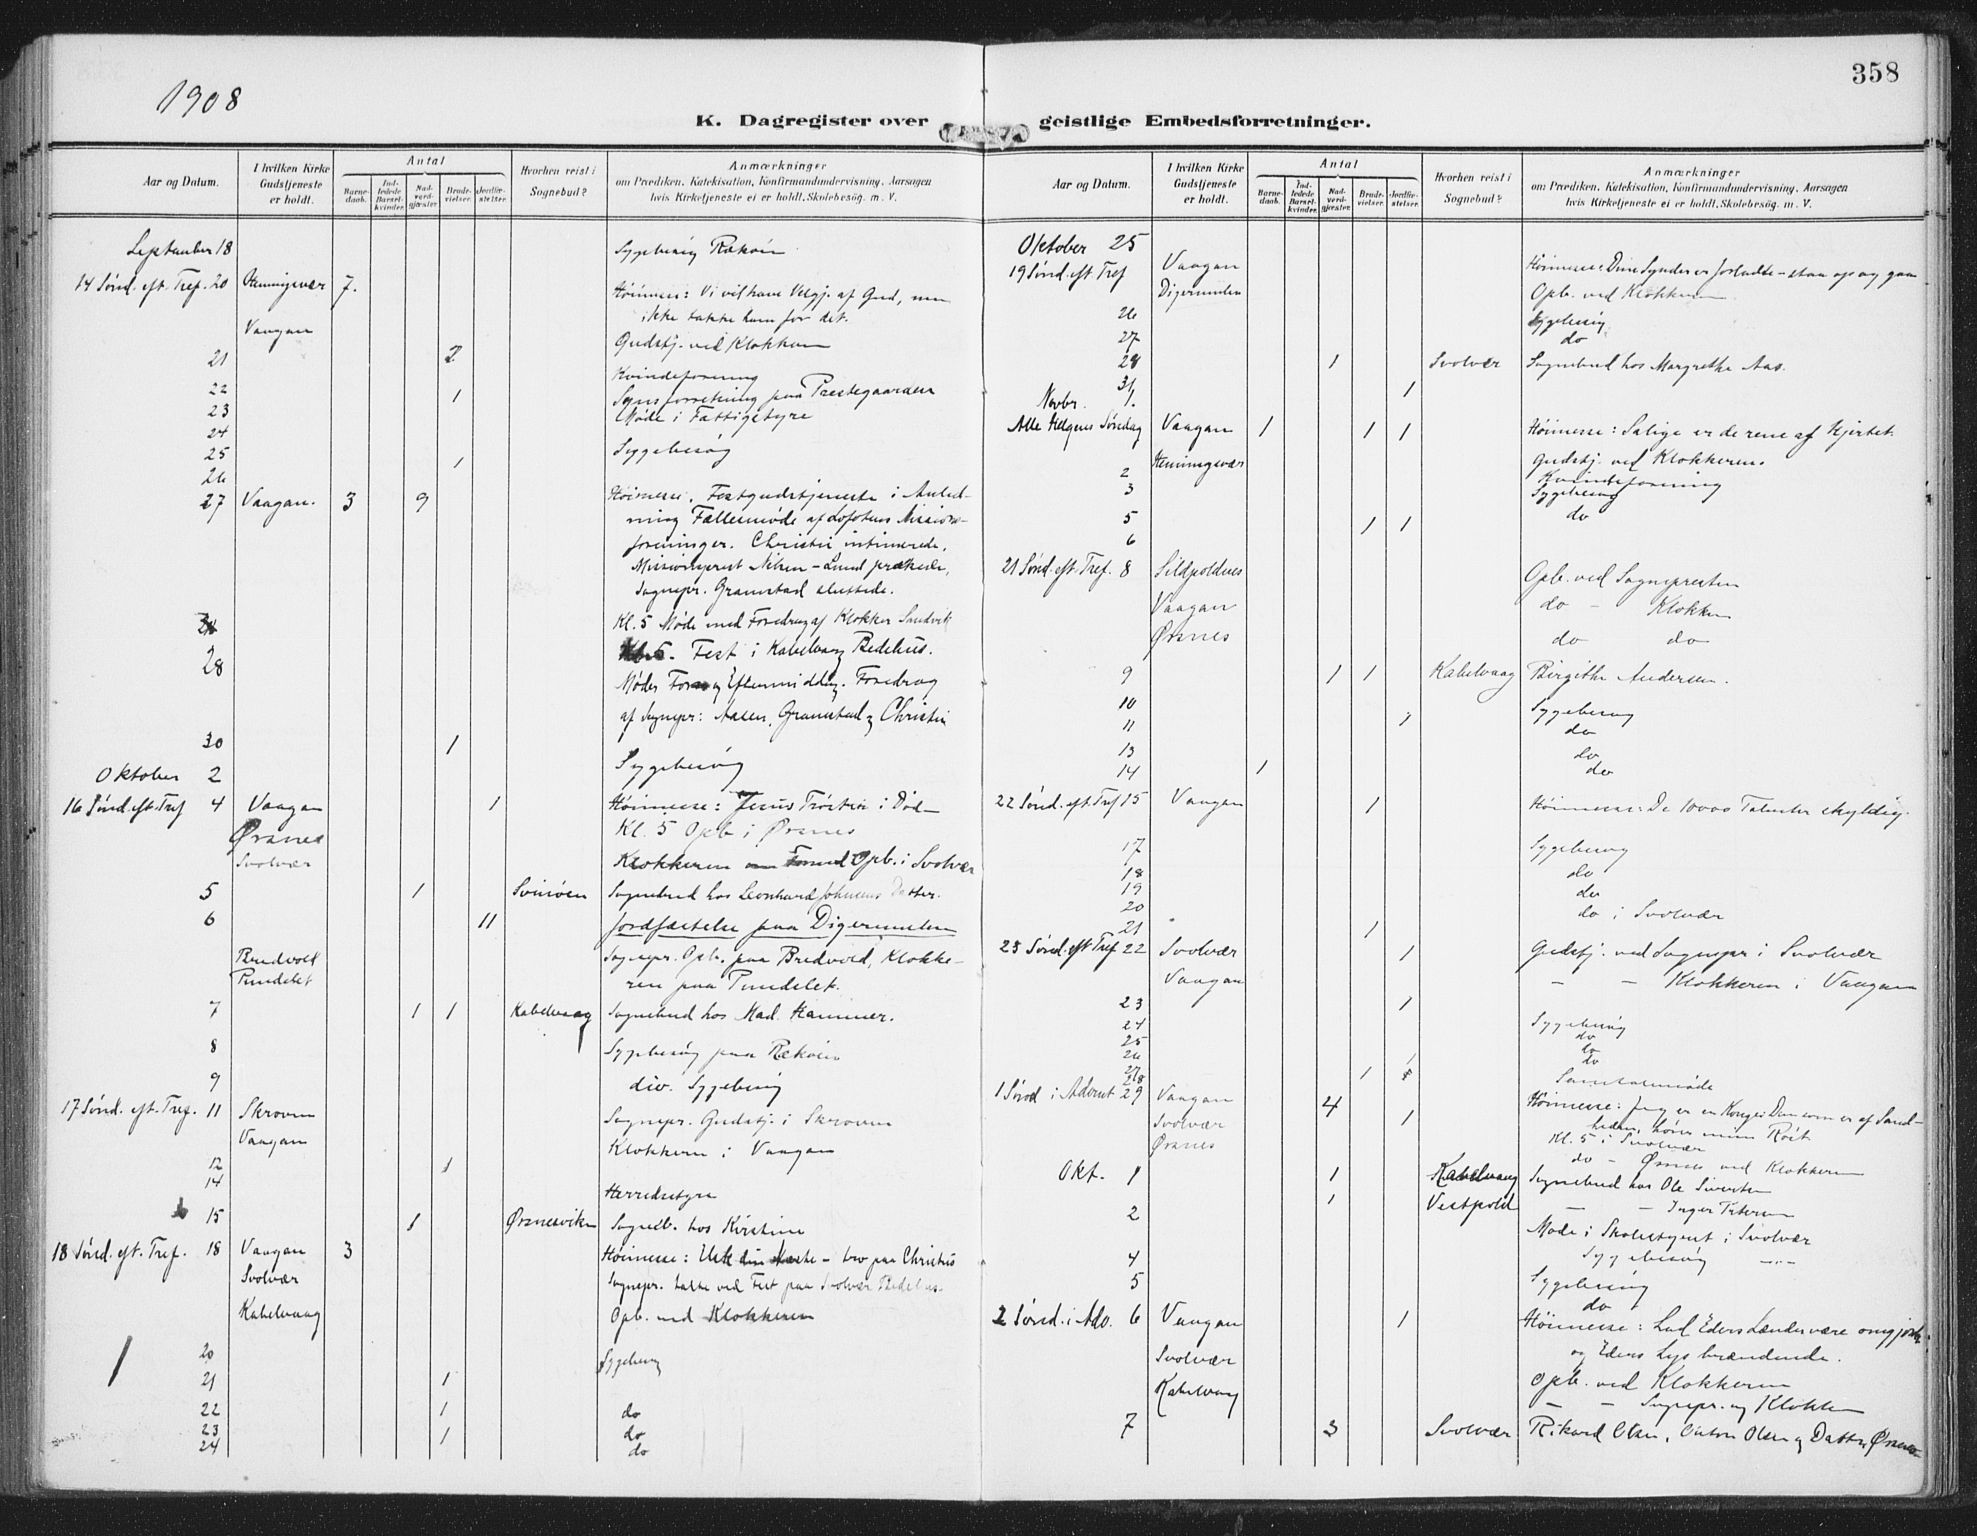 1908
358
K. Dagregister over geistlige Embedsforretninger.
Aar og Datum. I hvilken Kirke Gudstjeneste er holdt. Antal Barnedaab. Indledede Barselkvinder. Nadverdgjæster. Brudevielser. Jordfæstelser. Hvorhen reist i Sognebud? Anmærkninger om Prædiken, Katekisation, Konfirmandundervisning, Aarsagen hvis Kirketjeneste ei er holdt, Skolebesøg. m. V.
September 18 Sygebesøg Rækøen
14 Sønd. eft. Tref. 20 Henningsvær 7. Høimesse: Vi vil have Velgj. af Gud, men
ikke takke ham for det.
Vaagan Gudstj. ved Klokkeren
21 2
Kvindeforening
22 1 Synsforretning paa Prestegaarden
23 Møde i Fattigstyre
24
25 1 Sygebesøg
26
27 Vaagan. 3 9 Høimesse, Festgudstjeneste i Anled-
ning Fællesmøde af Lofotens Missions-
foreninger. Christie intimerede,
Missionsprest Nilsen-Lund prækede,
Sognepr. Gramstad sluttede.
Kl. 5 Møde med Foredrag af Klokker Sandvik
Fest i Kabelvaag Bedehus.
28 Møder For og Eftermiddag. Foredrag
af Sognepr: Aasen, Gramstad og Christie
30 1
Oktober 2 Sygebesøg
16 Sønd. eft. Tref 4 Vaagan 1 Høimesse: Jesus Trøsten i Død-
Ørsnes Kl. 5 Opb i Ørsnes
Svolvær Klokkeren Opb. i Svolvær
5 1 Svinøen Sognebud hos Leonhard Johnsens Datter.
6 11 Jordfæstelse paa Digermulen
Bredvold Sognepr. Opb. paa Bredvold, Klokke-
Pundslet ren paa Pundslet.
7 1 1 Kabelvaag Sognebud hos Mad. Hammer.
8 Sygebesøg paa Rækøen
9 div. Sygebesøg
17 Sønd. eft. Tref. 11 Skroven Sognepr. Gudstj. i Skroven
Vaagan Klokkeren i Vaagan
12 1
14 Herredsstyre
15 1 Ørsnesviken Sogneb. hos Kirstine
18 Sønd. eft. Tref. 18 Vaagan 3 Høimesse: Elsk din Næste - tro paa Christus
Svolvær Sognepr. talte ved Fest paa Svolvær Bedehus.
Kabelvaag Opb. ved Klokkeren
20 Sygebesøg
21 1
22 1 do
23 1 do
24 do
Aar og Datum. I hvilken Kirke Gudstjeneste er holdt. Antal Barnedaab. Indledede Barselkvinder. Nadverdgjæster. Brudevielser. Jordfæstelser. Hvorhen reist i Sognebud? Anmærkninger om Prædiken, Katekisation, Konfirmandundervisning, Aarsagen hvis Kirketjeneste ei er holdt, Skolebesøg. m. V.
Oktober 25
19 Sønd. eft Tref Vaagan Høimesse: Dine Synder er forladte - staa op og gaa
Digermulen Opb. ved Klokkeren
26 Sygebesøg
27 do
28 1 Svolvær Sognebud hos Margrethe Aas.
31 1
Novbr. 1.
Alle Helgens Søndag Vaagan 1 1 1 Høimesse: Salige er de rene af Hjertet.
Henningsvær Gudstj. ved Klokkeren.
2 Kvindeforening
3 Sygebesøg
5 1 1 do
6
21 Sønd. eft. Tref. 8 Sildpoldnes Opb. ved Sognepresten
Vaagan do - Klokken
Ørsnes do do
9 1 1 Kabelvaag Birgithe Andersen.
10 Sygebesøg
11 1 do
13 do
14 1 do
22 Sønd. eft. Tref 15 Vaagan 1 Høimesse: De 10000 Talenter skyldig.
17 Sygebesøg
18 do
19 do
20 do i Svolvær
21 1
23 Sønd. eft Tref 22 Svolvær 1 Gudstj. ved Sognepr i Svolvær
Vaagan - - Klokkeren i Vaagan
23 1
24 Sygebesøg
25 do
26 1 do
27 1 do
28 Samtalemøde
1 Sønd i Advent 29 Vaagan 4 1 Høimesse: Jeg er en Konge. Den som er af Sand-
heden, hører min Røst
Svolvær Kl. 5 i Svolvær
Ørsnes do - Ørsnes ved Klokkeren
Okt. 1 1 Kabelvaag Sognebud hos Ole Sivertsen
2 1 Vestpold - - Inger Petersen
Møde i Skolestyret i Svolvær
4 Sygebesøg
5 Sygebesøg
do
2 Sønd. i Adv. 6 Vaagan 1 Høimesse: Lad Eders Lænder være omgjorde
og Eders Lys brændende.
Svolvær Opb. ved Klokkeren
Kabelvaag - - Sognepr. og Klokken
7 3 Svolvær Rikard Olsen, Anton Olsen og Datter, Ørsnes